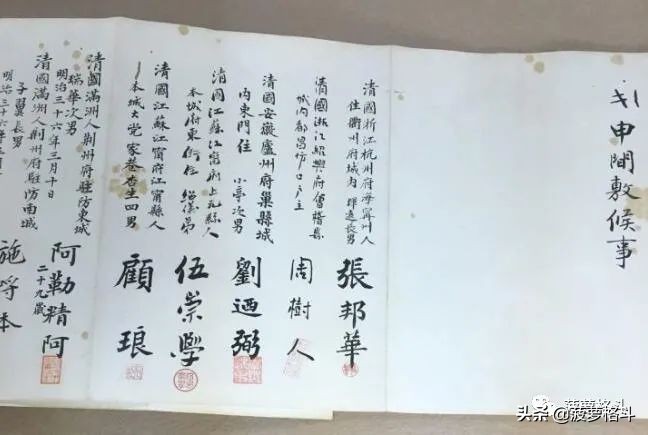 申聞敷候事
清國浙江杭州府海寧州人
住衢州府城内
長男
張邦華
清國浙江紹興府會稽县
城内都昌坊口戸主
周樹人
清國安徽廬州府巢縣城
内東門住 小亭次男
劉迺弼
清国江蘇江寗府上元縣人
本城府東街住
伍崇學
清國江蘇江甯府江甯縣人
本城大党家巷杏生四男
顧琅
清國滿洲人荆州府駐防東城
瑞華次男
明治三十六年三月十日
阿勒精阿
二十九歲
清國滿洲人荆州府駐防南城
子翼長男
明治三十六年
施
头条 @菠萝格斗
菠萝格斗